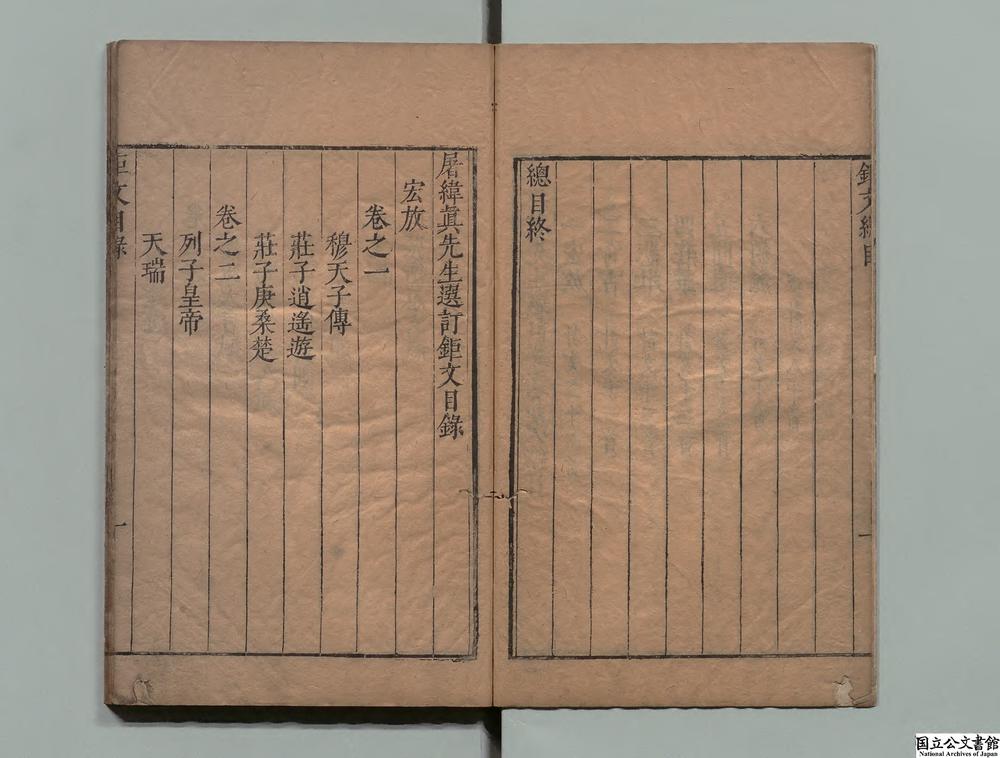 鉅文總目
一
總目終
屠緯眞先生選訂鉅文目錄
宏放
卷之一
穆天子傳
莊子逍遙遊
莊子庚桑楚
卷之二
列子皇帝
天瑞
鉅文目錄
一
国立公文書館
National Archives of Japan